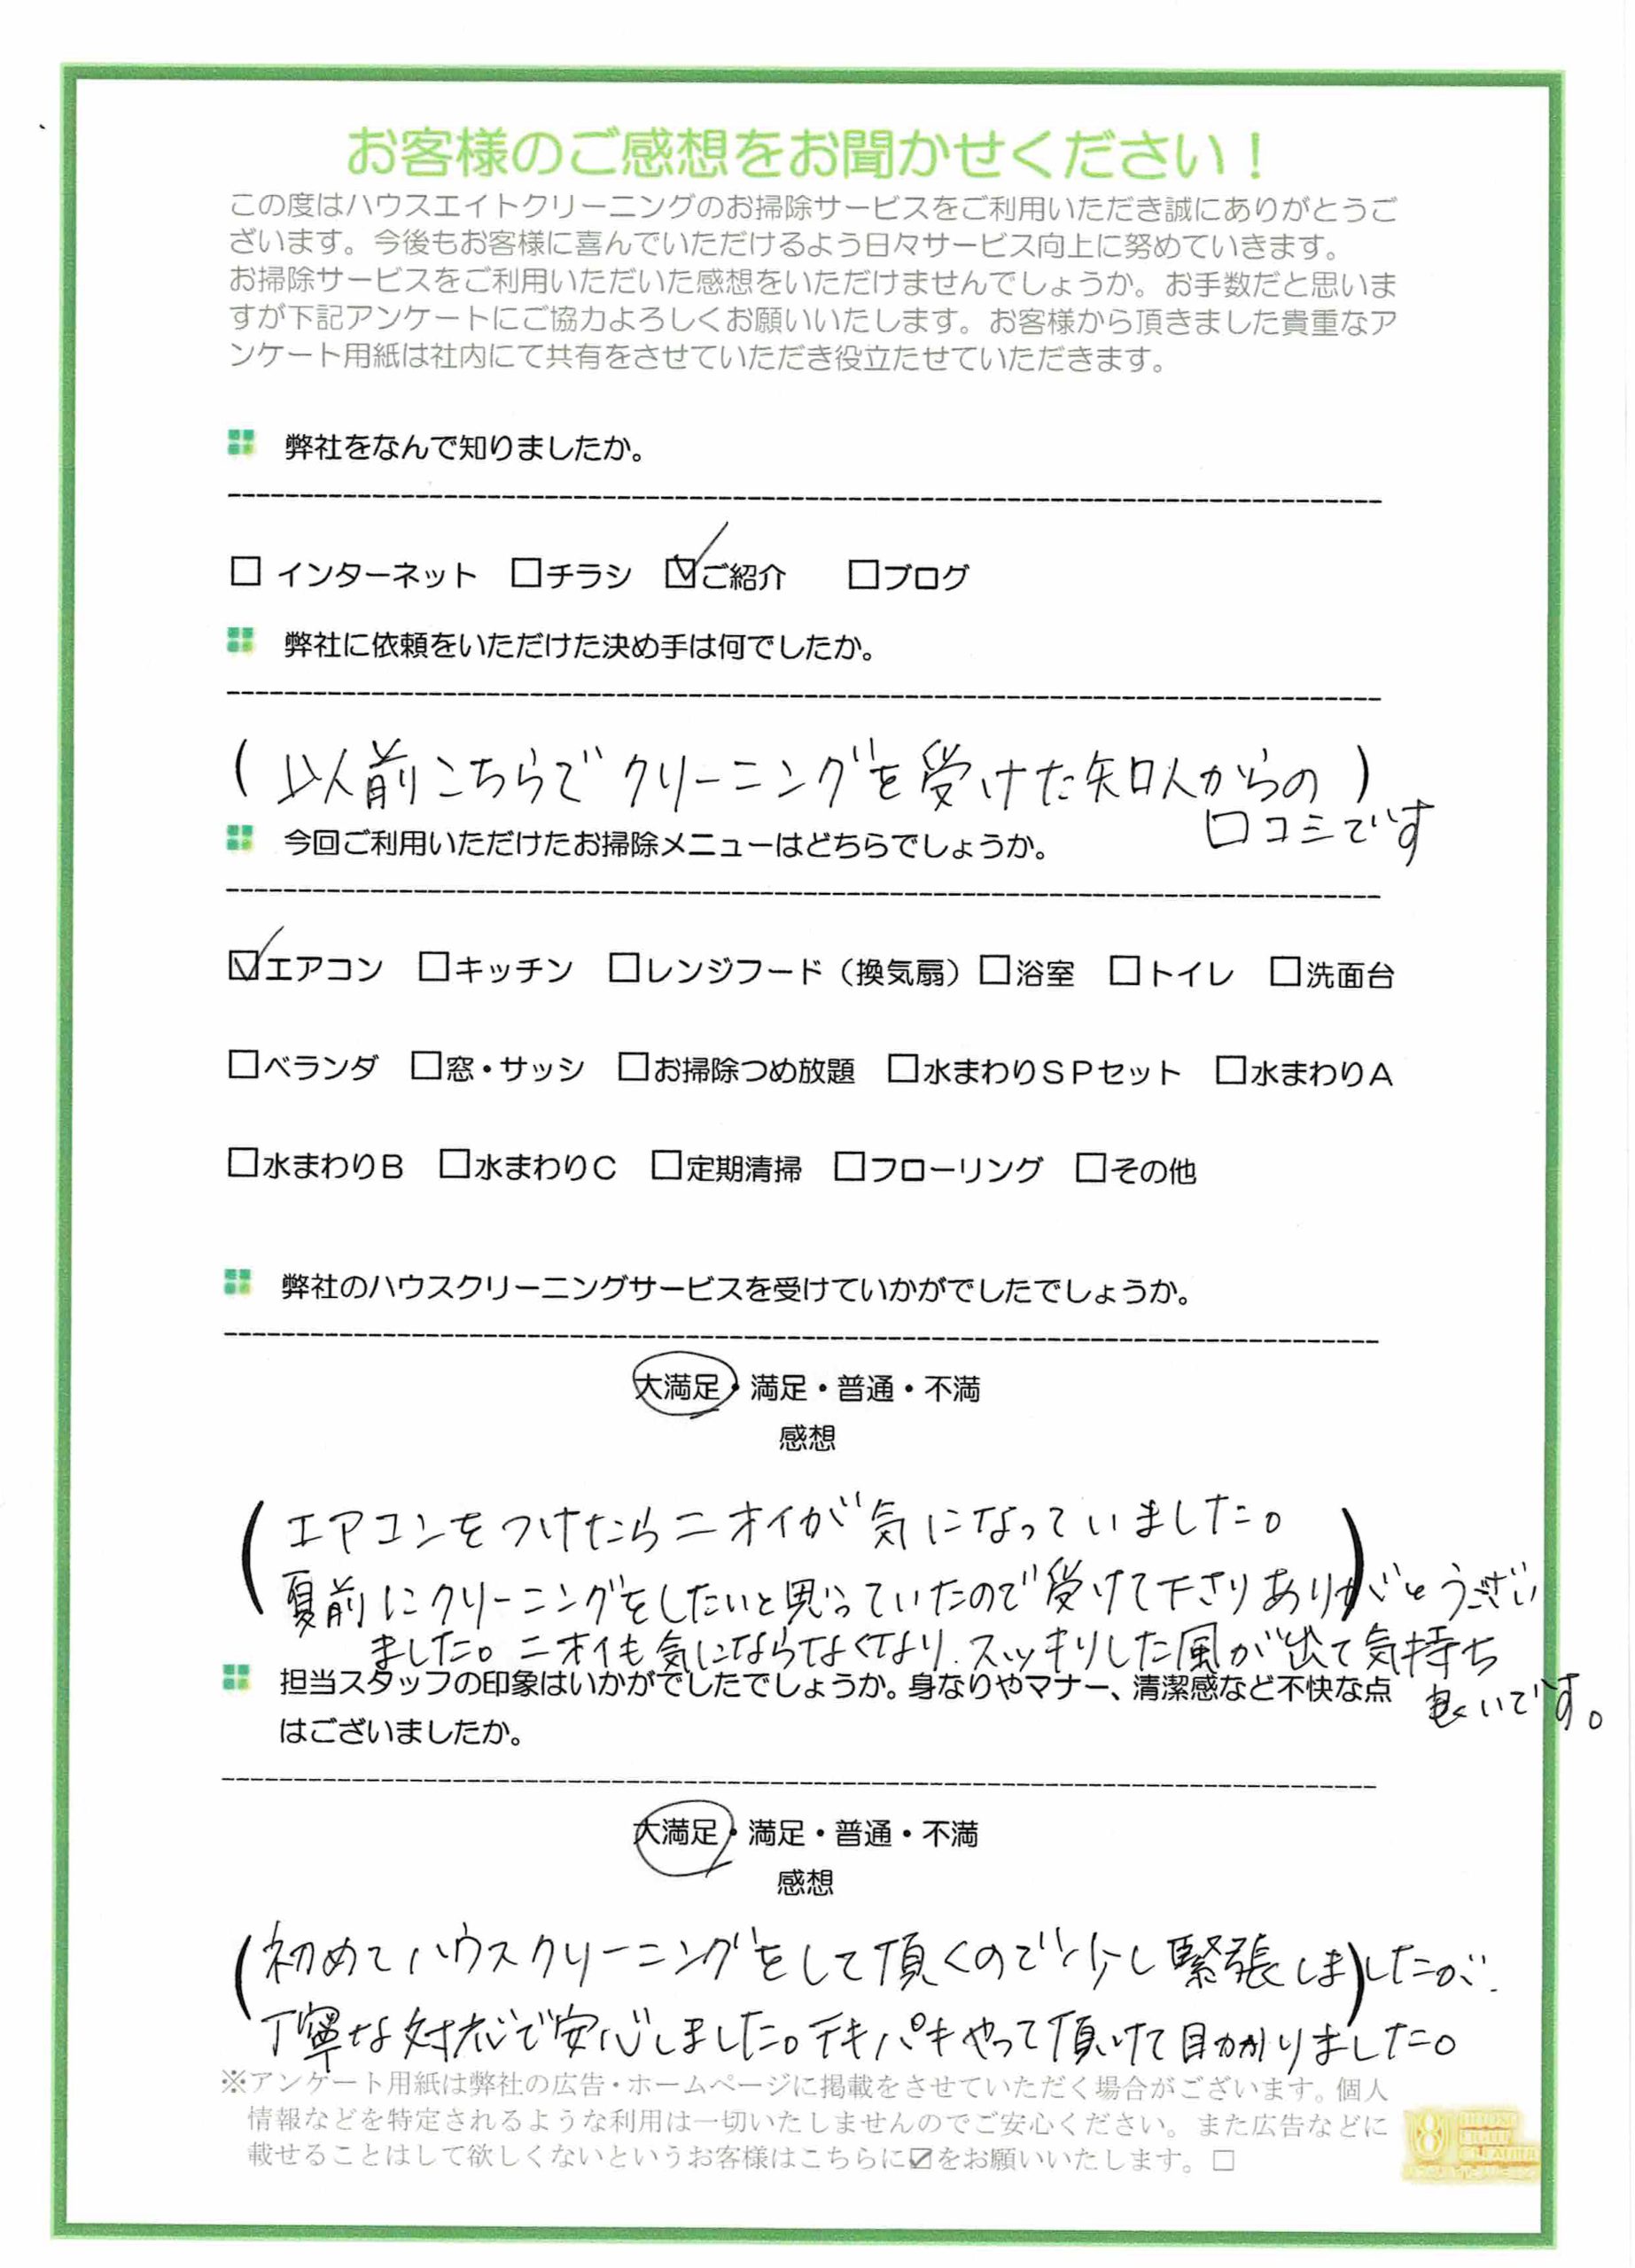 お客様のご感想をお聞かせください！
この度はハウスエイトクリーニングのお掃除サービスをご利用いただき誠にありがとうご
ざいます。今後もお客様に喜んでいただけるよう日々サービス向上に努めていきます。
お掃除サービスをご利用いただいた感想をいただけませんでしょうか。お手数だと思いま
すが下記アンケートにご協力よろしくお願いいたします。お客様から頂きました貴重なア
ンケート用紙は社内にて共有をさせていただき役立たせていただきます。
弊社をなんで知りましたか。
□ インターネット □チラシ ☑ご紹介 □ブログ
弊社に依頼をいただけた決め手は何でしたか。
(以前こちらでクリーニングを受けた知人からの)
口コミです
今回ご利用いただけたお掃除メニューはどちらでしょうか。
☑エアコン □キッチン □レンジフード（換気扇）□浴室 □トイレ □洗面台
□ベランダ □窓・サッシ □お掃除つめ放題 □水まわりＳＰセット □水まわりＡ
□水まわりＢ □水まわりＣ □定期清掃 □フローリング □その他
弊社のハウスクリーニングサービスを受けていかがでしたでしょうか。
大満足・満足・普通・不満
感想
(エアコンをつけたらニオイが気になっていました。
夏前にクリーニングをしたいと思っていたので受けて下さりありがとうござい
ました。ニオイも気にならなくなり、スッキリした風が出て気持ち
良いです。
担当スタッフの印象はいかがでしたでしょうか。身なりやマナー、清潔感など不快な点
はございましたか。
大満足・満足・普通・不満
感想
(初めてハウスクリーニングをして頂くので少し緊張しましたが、
丁寧な対応で安心しました。テキパキやって頂けて助かりました。
※アンケート用紙は弊社の広告・ホームページに掲載をさせていただく場合がございます。個人
情報などを特定されるような利用は一切いたしませんのでご安心ください。また広告などに
載せることはして欲しくないというお客様はこちらに☑をお願いいたします。□